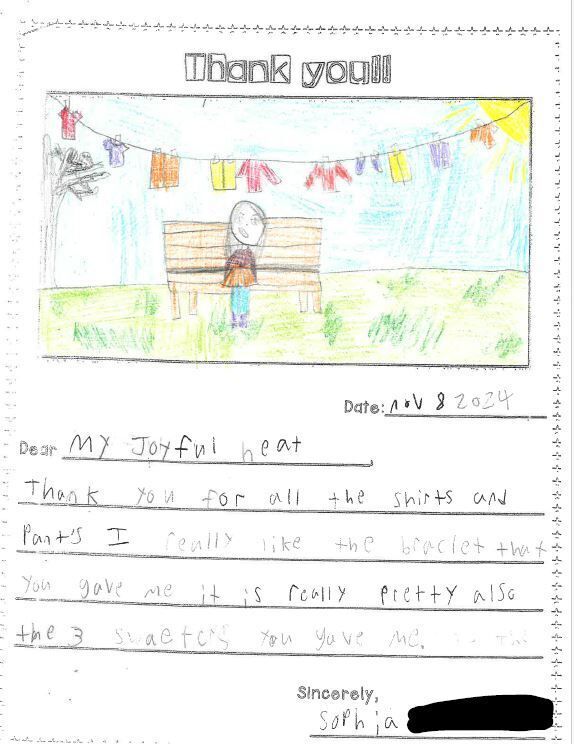 Thank you!!
Date: nov 8 2024
Dear My Joyful heat
Thank you for all the shirts and
Pant's I really like the braclet that
you gave me it is really pretty also
the 3 swaeters you gave me.
Sincerely,
Sophia